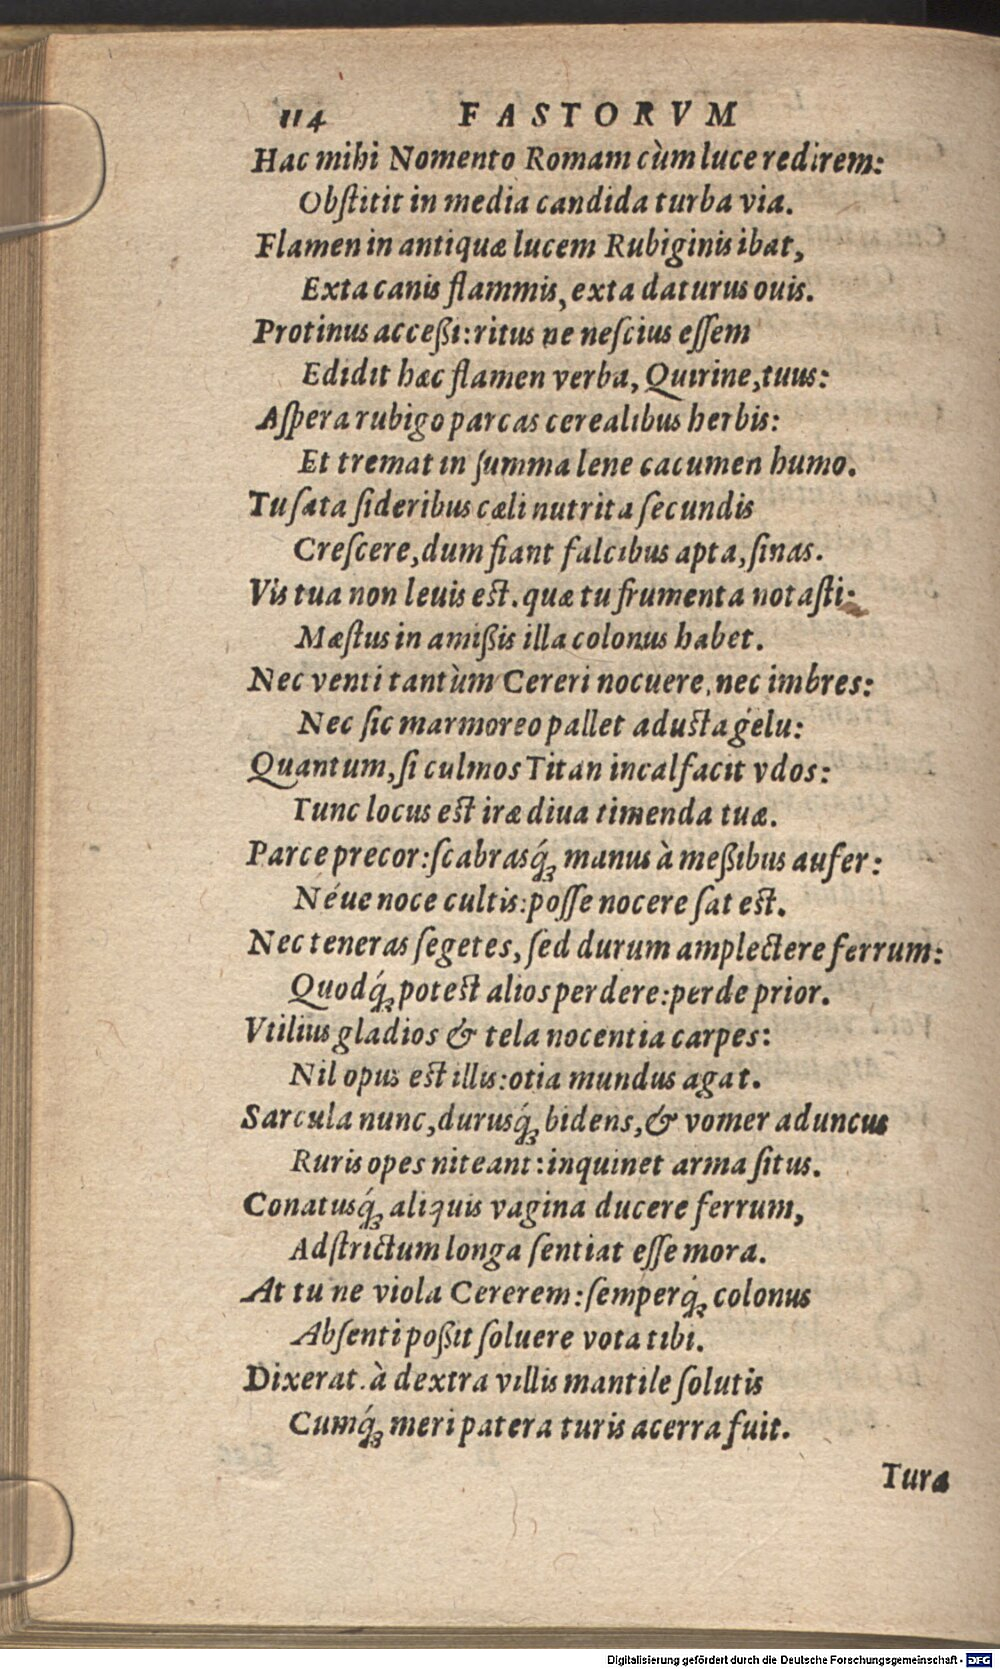 114 FASTORVM
Hac mihi Nomento Romam cùm luce redirem:
Obſtitit in media candida turba via.
Flamen in antiquæ lucem Rubiginis ibat,
Exta canis flammis, exta daturus ouis.
Protinus acceßi: ritus ne neſcius eſſem
Edidit hæc flamen verba, Quirine, tuus:
Aſpera rubigo parcas cerealibus herbis:
Et tremat in ſumma lene cacumen humo.
Tu ſata ſideribus cæli nutrita ſecundis
Creſcere, dum fiant falcibus apta, ſinas.
Vis tua non leuis est. quæ tu frumenta notaſti:
Mæſtus in amißis illa colonus habet.
Nec venti tantùm Cereri nocuere, nec imbres:
Nec ſic marmoreo pallet adusta gelu:
Quantum, ſi culmos Titan incalfacit vdos:
Tunc locus est iræ diua timenda tuæ.
Parce precor: ſcabrasq́ꝫ manus à meßibus aufer:
Néue noce cultis: poſſe nocere ſat est.
Nec teneras ſegetes, ſed durum amplectere ferrum:
Quodq́ꝫ potest alios perdere: perde prior.
Vtilius gladios & tela nocentia carpes:
Nil opus est illis: otia mundus agat.
Sarcula nunc, durusq́ꝫ bidens, & vomer aduncus
Ruris opes niteant: inquinet arma ſitus.
Conatusq́ꝫ aliquis vagina ducere ferrum,
Adſtrictum longa ſentiat eſſe mora.
At tu ne viola Cererem: ſemperq́ꝫ colonus
Abſenti poßit ſoluere vota tibi.
Dixerat. à dextra villis mantile ſolutis
Cumq́ꝫ meri patera turis acerra fuit.
Tura
Digitalisierung gefördert durch die Deutsche Forschungsgemeinschaft - DFG